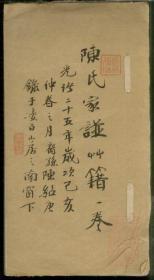 陳氏家譜艸籍一卷
光緒二十五年歲次己亥
仲春之月裔孫陳紹唐
錄于凌白山居之南窗下